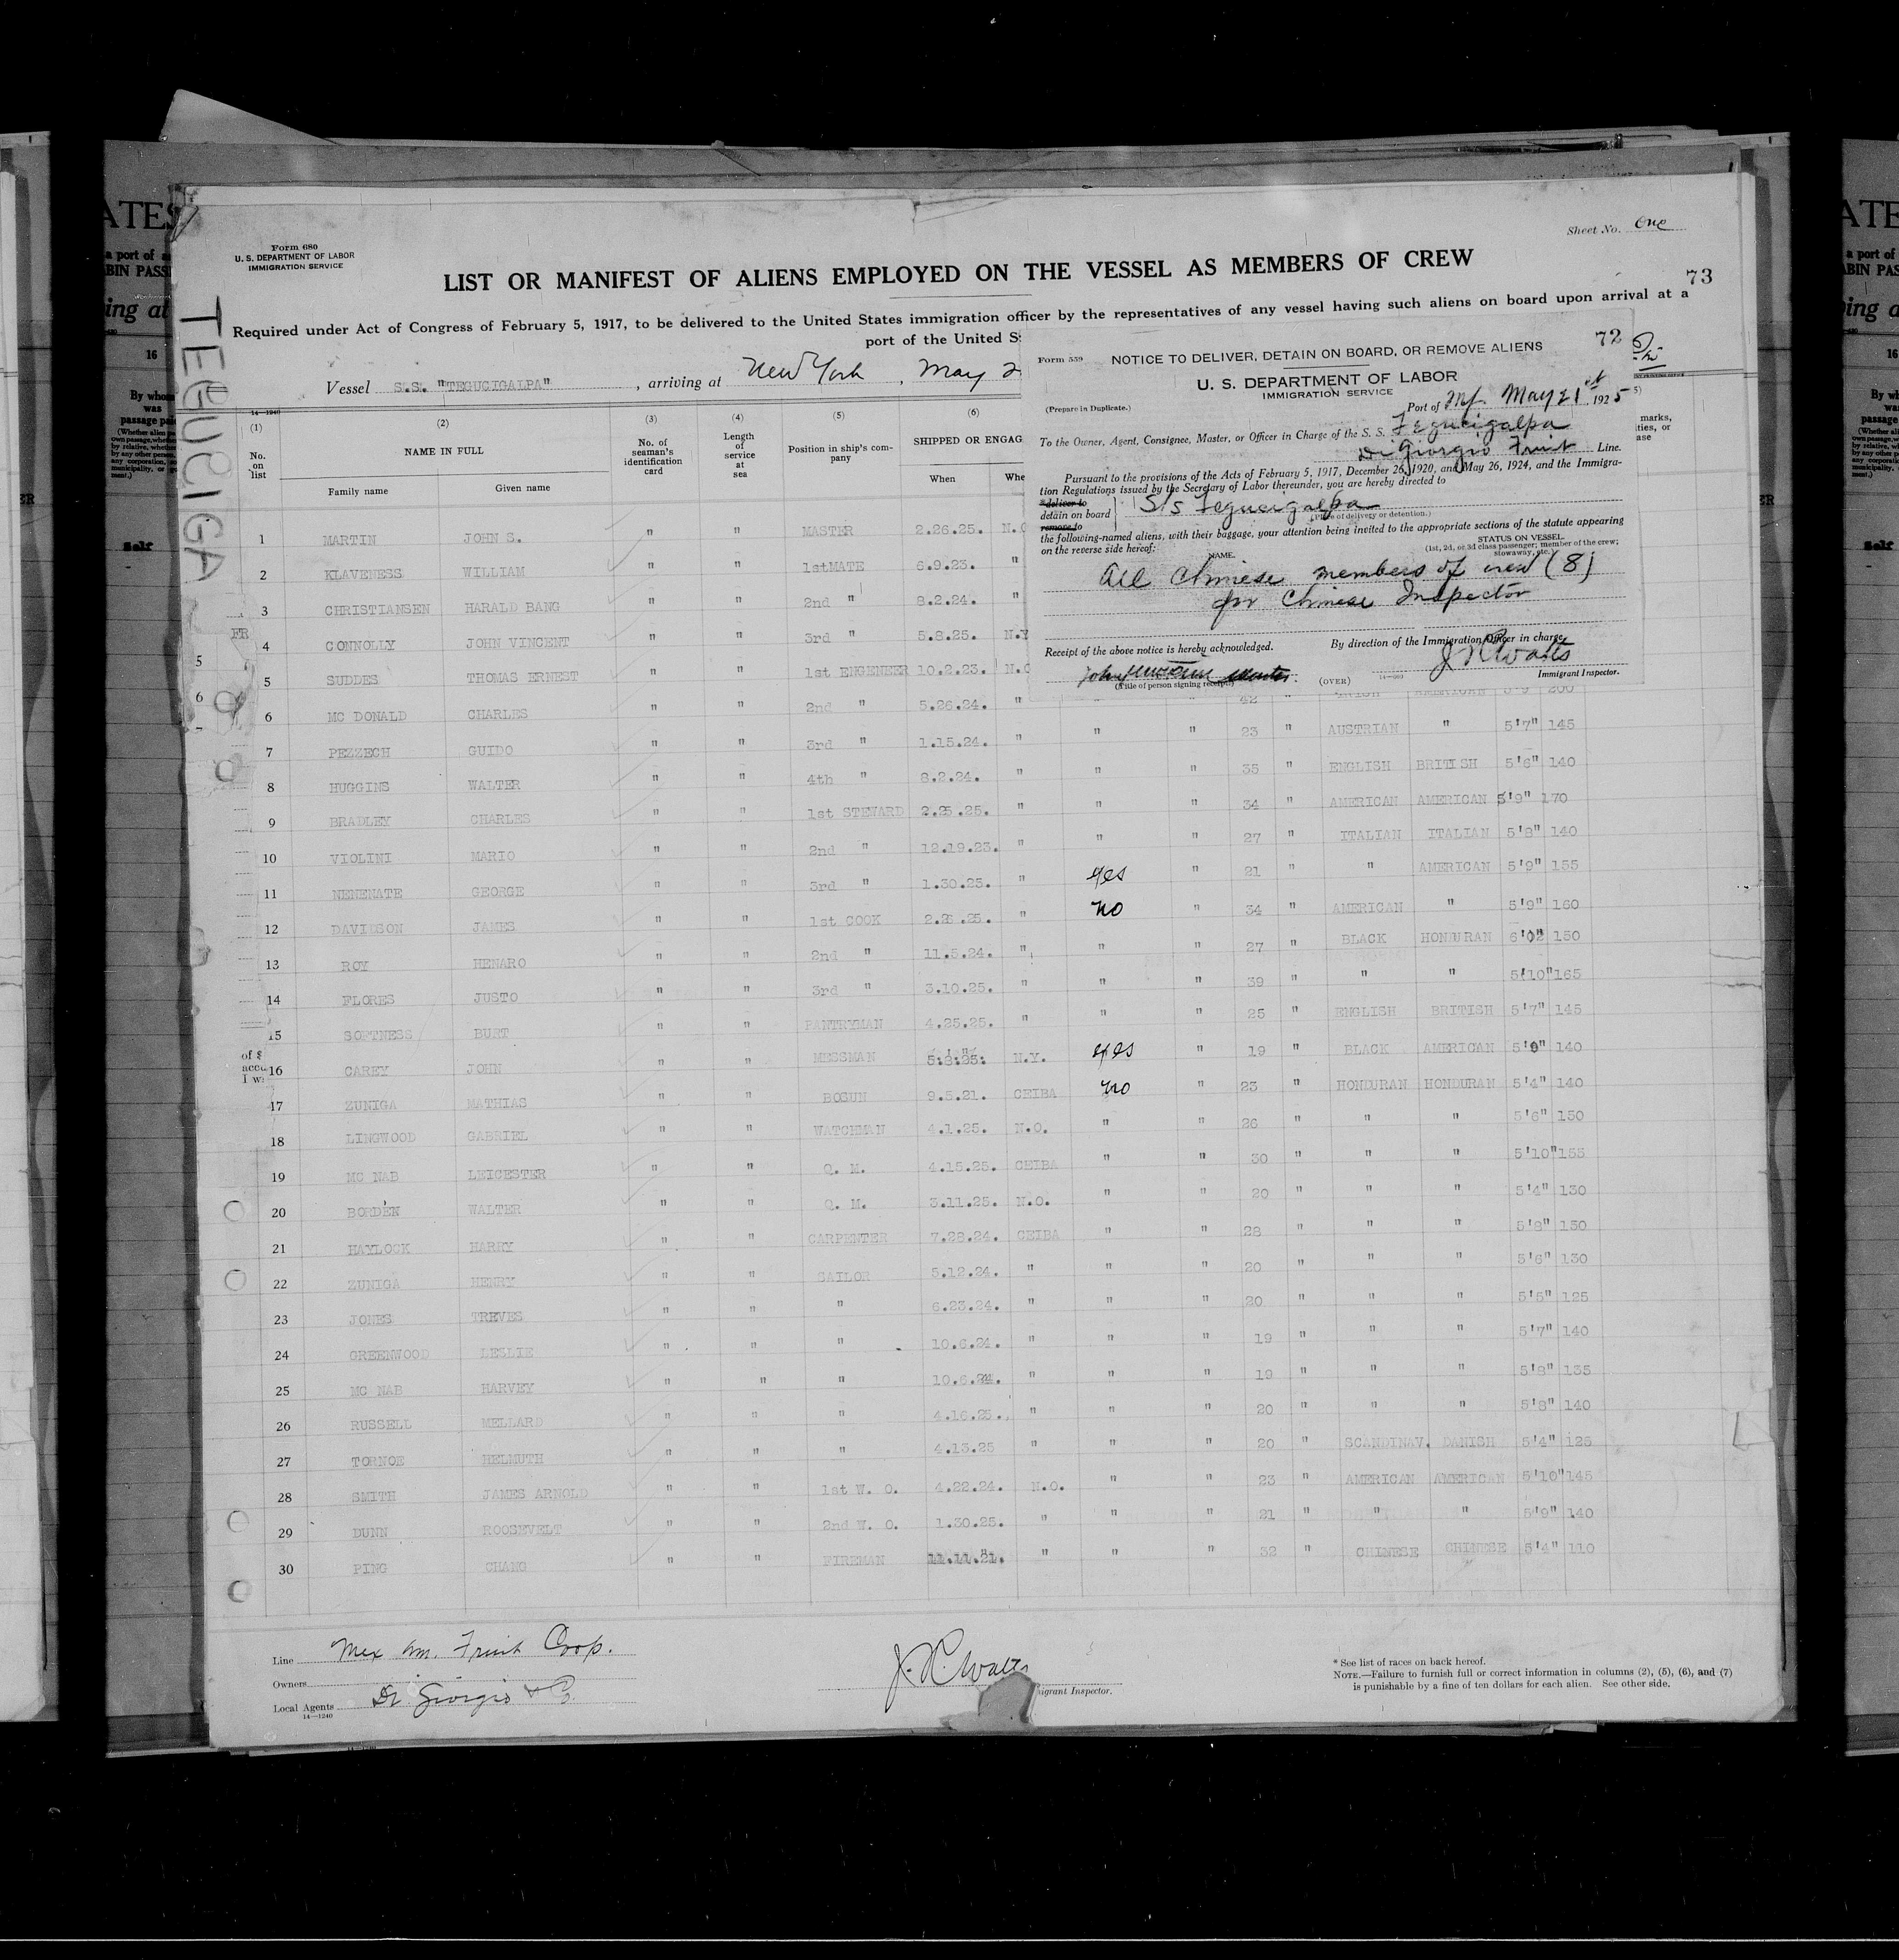 Form 680
U. S. DEPARTMENT OF LABOR
IMMIGRATION SERVICE
Sheet No. One
LIST OR MANIFEST OF ALIENS EMPLOYED ON THE VESSEL AS MEMBERS OF CREW
73
Required under Act of Congress of February 5, 1917, to be delivered to the United States immigration officer by the representatives of any vessel having such aliens on board upon arrival at a
port of the United S
TEGUCIGALPA
Vessel S.S. "TEGUCIGALPA", arriving at New York, May 2
14—1240
(1) (2) (3) (4) (5) (6)
No. on list NAME IN FULL No. of seaman's identification card Length of service at sea Position in ship's company SHIPPED OR ENGAG
Family name Given name When Whe
1 MARTIN JOHN S. " " MASTER 2.26.25. N.O
2 KLAVENESS WILLIAM " " 1stMATE 6.9.23. "
3 CHRISTIANSEN HARALD BANG " " 2nd " 8.2.24. "
4 CONNOLLY JOHN VINCENT " " 3rd " 5.8.25. N.Y
5 SUDDES THOMAS ERNEST " " 1st ENGENEER 10.2.23. N.O
6 MC DONALD CHARLES " " 2nd " 5.26.24. " " 42 " AMERICAN 5'9 200
7 PEZZECH GUIDO " " 3rd " 1.15.24. " " " 23 " AUSTRIAN " 5'7" 145
8 HUGGINS WALTER " " 4th " 8.2.24. " " " 35 " ENGLISH BRITISH 5'6" 140
9 BRADLEY CHARLES " " 1st STEWARD 2.25.25. " " " 34 " AMERICAN AMERICAN 5'9" 170
10 VIOLINI MARIO " " 2nd " 12.19.23. " " " 27 " ITALIAN ITALIAN 5'8" 140
11 NENENATE GEORGE " " 3rd " 1.30.25. " yes " 21 " " AMERICAN 5'9" 155
12 DAVIDSON JAMES " " 1st COOK 2.26.25. " no " 34 " AMERICAN " 5'9" 160
13 ROY HENARO " " 2nd " 11.5.24. " " " 27 " BLACK HONDURAN 6'02 150
14 FLORES JUSTO " " 3rd " 3.10.25. " " " 39 " " " 5'10" 165
15 SOFTNESS BURT " " PANTRYMAN 4.25.25. " " " 25 " ENGLISH BRITISH 5'7" 145
16 CAREY JOHN " " MESSMAN 5.8.25. N.Y. yes " 19 " BLACK AMERICAN 140
17 ZUNIGA MATHIAS " " BOSUN 9.5.21. CEIBA no " 23 " HONDURAN HONDURAN 5'4" 140
18 LINGWOOD GABRIEL " " WATCHMAN 4.1.25. N.O. " " 26 " " " 5'6" 150
19 MC NAB LEICESTER " " Q. M. 4.15.25. CEIBA " " 30 " " " 5'10" 155
20 BORDEN WALTER " " Q. M. 3.11.25. N.O. " " 20 " " " 5'4" 130
21 HAYLOCK HARRY " " CARPENTER 7.28.24. CEIBA " " 28 " " " 150
22 ZUNIGA HENRY " " SAILOR 5.12.24. " " " 20 " " " 5'6" 130
23 JONES TREVES " " " 6.23.24. " " " 20 " " " 5'5" 125
24 GREENWOOD LESLIE " " " 10.6.24. " " " 19 " " " 5'7" 140
25 MC NAB HARVEY " " " 10.6.24. " " " 19 " " " 5'8" 135
26 RUSSELL MELLARD " " " 4.16.25. " " " 20 " " " 5'8" 140
27 TORNOE HELMUTH " " " 4.13.25 " " " 20 " SCANDINAV. DANISH 5'4" 125
28 SMITH JAMES ARNOLD " " 1st W. O. 4.22.24. N.O. " " 23 " AMERICAN AMERICAN 5'10" 145
29 DUNN ROOSEVELT " " 2nd W. O. 1.30.25. " " " 21 " " " 5'9" 140
30 PING CHANG " " FIREMAN 11.11.21. " " " 32 " CHINESE CHINESE 5'4" 110
Form 559
72
NOTICE TO DELIVER, DETAIN ON BOARD, OR REMOVE ALIENS
U. S. DEPARTMENT OF LABOR
IMMIGRATION SERVICE
(Prepare in Duplicate.)
Port of NY. May 21st, 1925
To the Owner, Agent, Consignee, Master, or Officer in Charge of the S. S. Tegucigalpa
Di Giorgio Fruit Line.
Pursuant to the provisions of the Acts of February 5, 1917, December 26, 1920, and May 26, 1924, and the Immigra-
tion Regulations issued by the Secretary of Labor thereunder, you are hereby directed to
*deliver to
detain on board
remove to
S/s Tegucigalpa
(Place of delivery or detention.)
the following-named aliens, with their baggage, your attention being invited to the appropriate sections of the statute appearing
on the reverse side hereof:
NAME.
STATUS ON VESSEL
(1st, 2d, or 3d class passenger; member of the crew; stowaway, etc.)
All Chinese members of crew (8)
for Chinese Inspector
Receipt of the above notice is hereby acknowledged.
By direction of the Immigration Officer in charge,
J R Watts
(Title of person signing receipt)
(OVER)
Immigrant Inspector.
Line Mex Am. Fruit Corp.
Owners
Local Agents Di Giorgio & Co.
14—1240
J. R. Watts
migrant Inspector.
* See list of races on back hereof.
NOTE.—Failure to furnish full or correct information in columns (2), (5), (6), and (7)
is punishable by a fine of ten dollars for each alien. See other side.